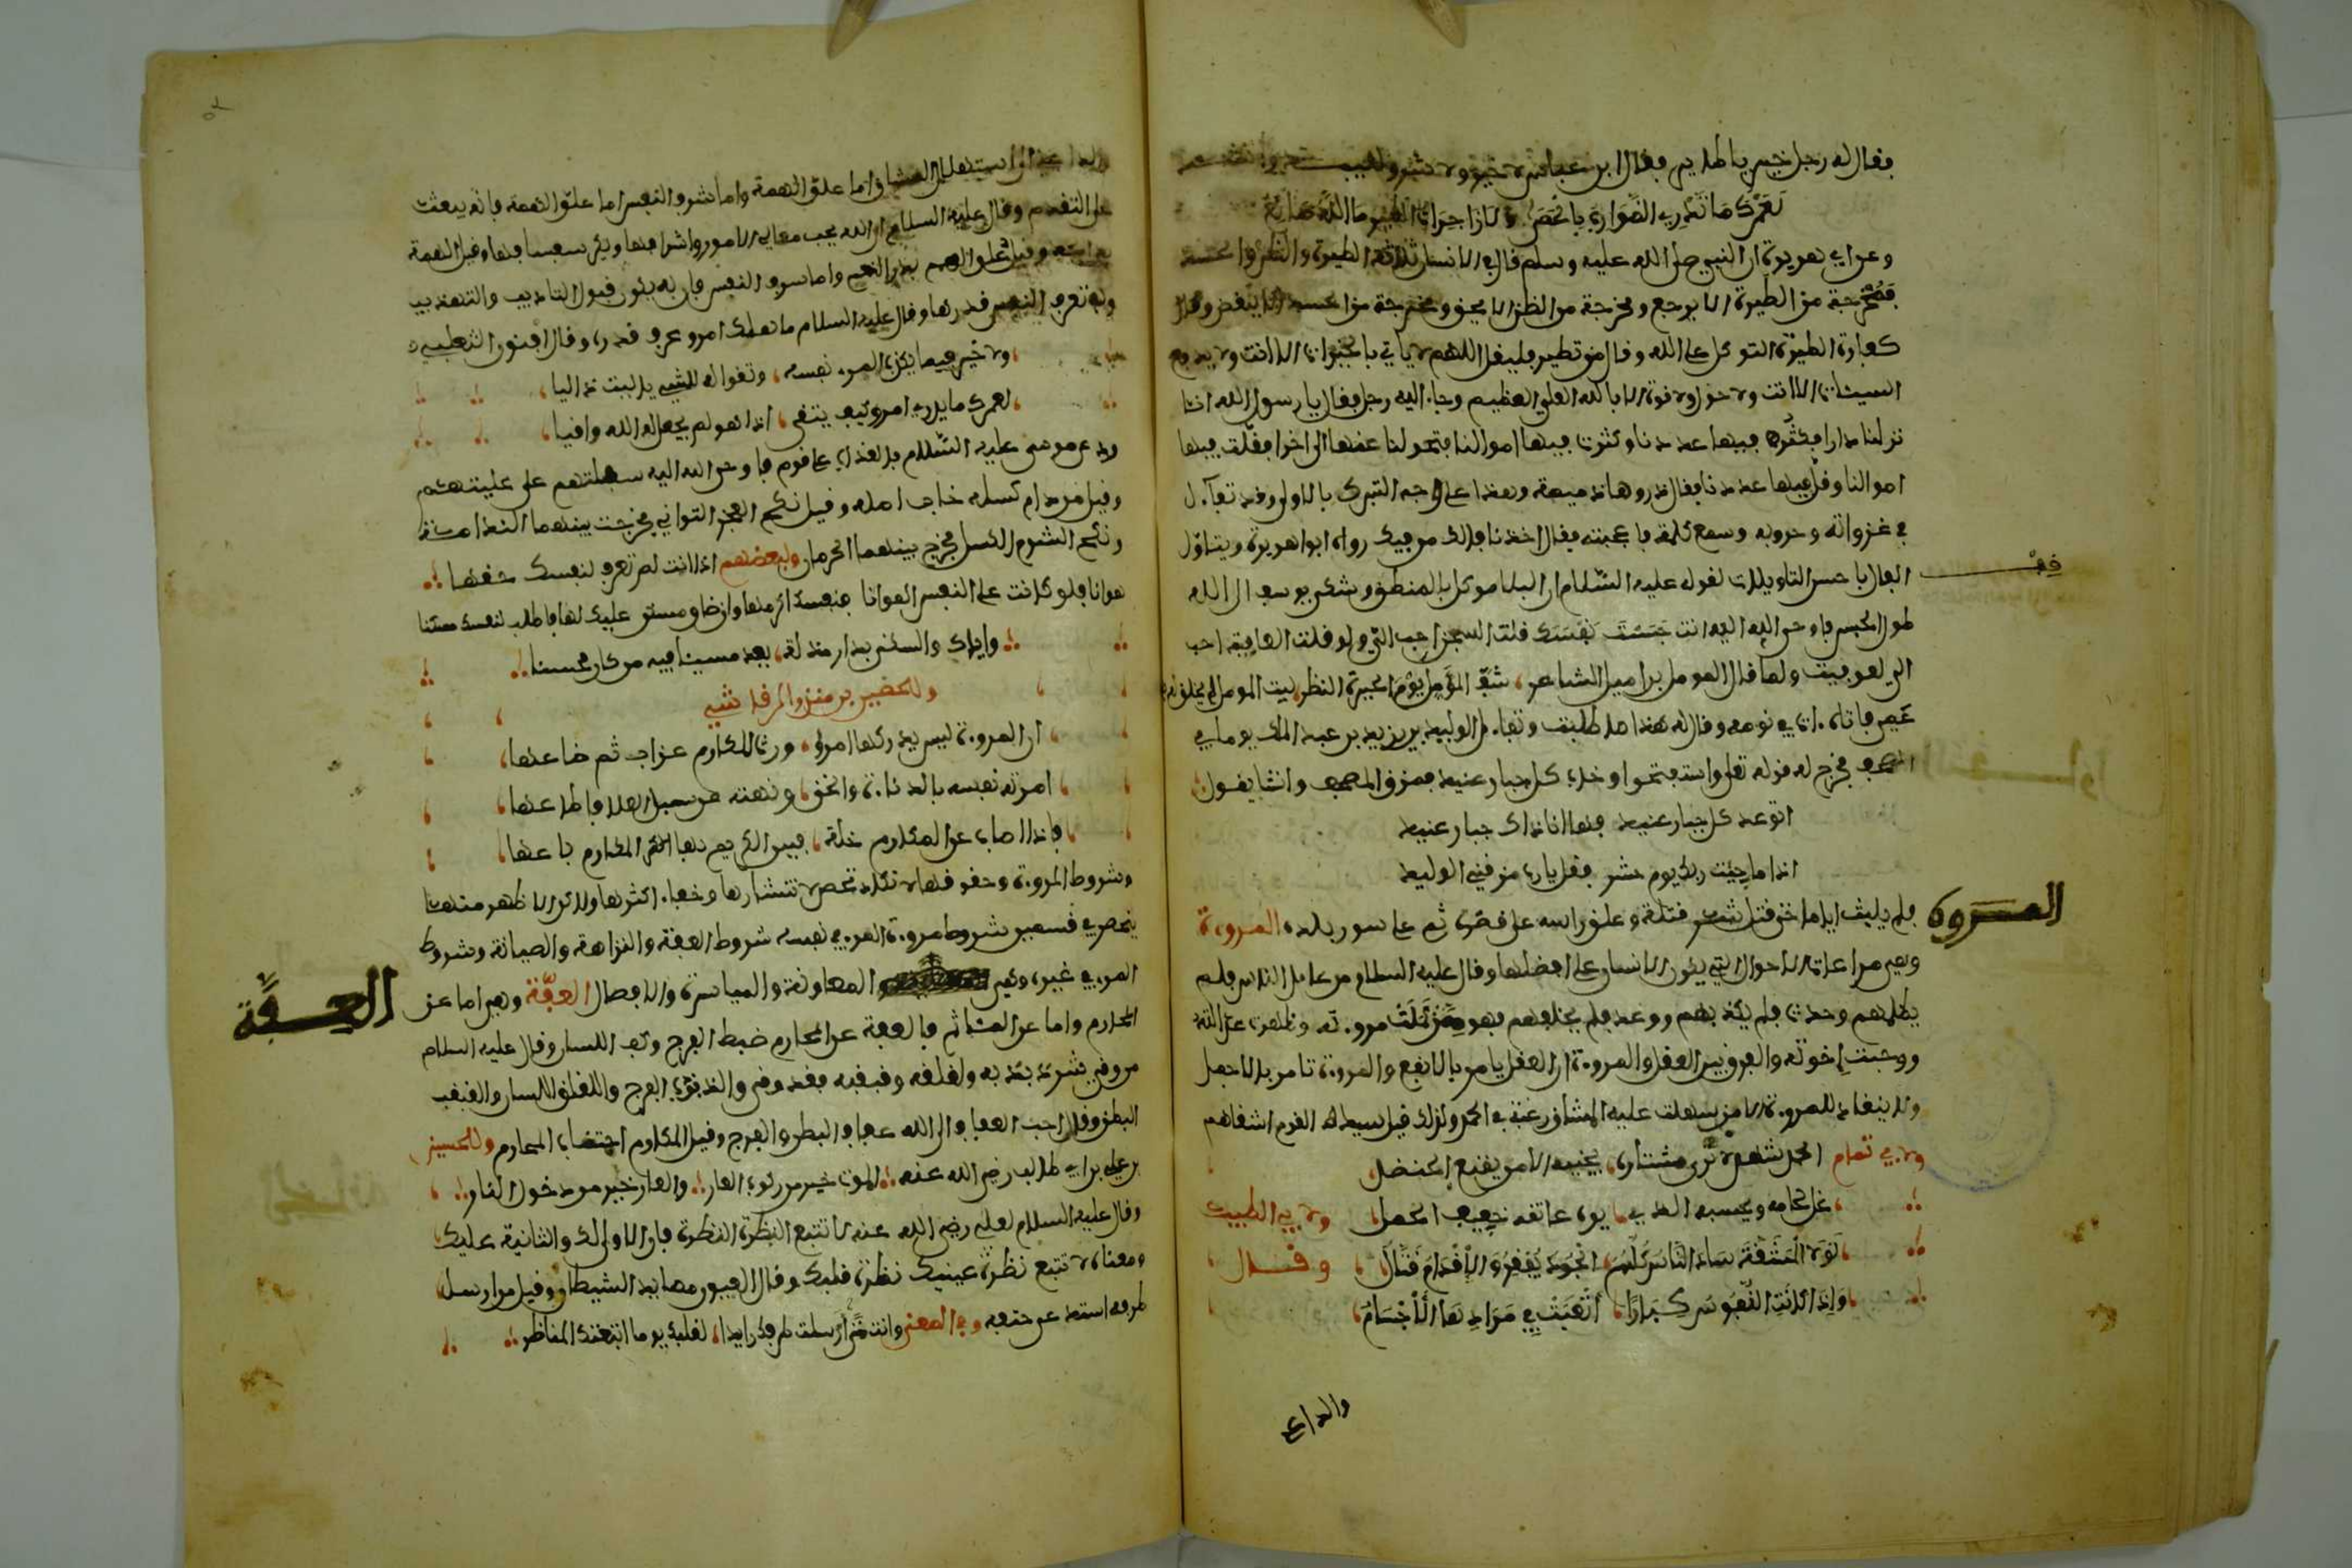 فقال له رجل خير يا طاير فقال ابن عباس لا خير ولا شر
لعمرك ما تدري الضوارب بالحصى ولا زاجرات الطير ما الله صانع
وعن ابي هريرة ان النبي صلى الله عليه وسلم قال في الانسان ثلاثة الطيرة والظن والحسد
فمخرجه من الطيرة الا يرجع ومخرجه من الظن الا يحقق ومخرجه من الحسد الا يبغض وقال
كفارة الطيرة التوكل على الله وقال من تطير فليقل اللهم لا ياتي بالخيرات الا انت ولا يدفع
السيئات الا انت ولا حول ولا قوة الا بالله العلي العظيم وجاء اليه رجل فقال يا رسول الله انا
نزلنا دارا فكثر فيها عددنا وكثرت فيها اموالنا فتحولنا عنها الى اخرى فقلت فيها
اموالنا وقل فيها عددنا فقال ذروها ذميمة وهذا على وجه التبرك بالاولى وقد تفاءل
في غزواته وحروبه وسمع كلمة فاعجبته فقال اخذنا فالك من فيك رواه ابو هريرة ويتاول
قف
الفال باحسن التاويلات لقوله عليه السلام ان البلا موكل بالمنطق وشكى يوسف الى الله
طول الحبس فاوحى الله اليه انت حبست نفسك قلت السجن احب الي ولو قلت العافية احب
الي لعوفيت ولما قال المومل بن اميل الشاعر شف المؤمل يوم الحيرة النظر ليت المومل لم يخلق له
عمي فاتاه ات في نومه وقال له هذا ما طلبت وتفاءل الوليد بن يزيد بن عبد الملك يوما في
المصحف فخرج له قوله تعلى واستفتحوا وخاب كل جبار عنيد فمزق المصحف وانشا يقول
اتوعد كل جبار عنيد فها انا ذاك جبار عنيد
اذا ما جيت ربك يوم حشر فقل يا رب مزقني الوليد
المروة
فلم يلبث اياما حتى قتل شر قتلة وعلق راسه على قصره ثم على سور بلده المروءة
وهي مراعاة الاحوال التي يكون الانسان على افضلها وقال عليه السلام من عامل الناس فلم
يظلمهم وحدثهم فلم يكذبهم ووعدهم فلم يخلفهم فهو ممن كملت مروءته وظهرت عدالته
ووجبت اخوته والفرق بين العقل والمروءة ان العقل يامر بالانفع والمروءة تامر بالاجمل
ولا ينقاد للمروءة الا من سهلت عليه المشاق رغبة في الحمد ولذلك قيل سيد القوم اشقاهم
ولابي تمام الحمد شهد لا ترى مشتاره يجنيه الا من نقيع الحنظل
غل لحامله ويحسبه الذي لم يوه عاتقه خفيف المحمل ولابي الطيب
لولا المشقة ساد الناس كلهم الجود يفقر والاقدام قتال وقال
واذا كانت النفوس كبارا اتعبت في مرادها الاجسام
والداعي
٥٢
الى استسهال المشاق اما علو الهمة واما شرف النفس اما علو الهمة فانه يبعث
على التقدم وقال عليه السلام ان الله يحب معالي الامور واشرافها ويكره سفسافها وقيل الهمة
وقيل علو الهمم بذر النعم واما شرف النفس فان به يكون قبول التاديب والتهذيب
وقال عليه السلام ما هلك امرؤ عرف قدره وقال افنون التغلبي
ولا خير فيما يكذب المرء نفسه وتقواله للشيء يا ليت ذا ليا
لعمرك ما يدري امرؤ كيف يتقي اذا هو لم يجعل له الله واقيا
ودعى موسى عليه السلام بالعذاب على قوم فاوحى الله اليه
وقيل من دام كسله خاب امله وقيل نكح العجز التواني فخرجت بينهما الندامة
ونكح الشوم الكسل فخرج بينهما الحرمان ولبعضهم اذا انت لم تعرف لنفسك حقها
هوانا بها كانت على الناس اهونا فنفسك اكرمها وان ضاق مسكن عليك لها فاطلب لنفسك مسكنا
واياك والسكنى بدار مذلة يعد مسيئا فيه من كان محسنا
وللحصين بن منذر الرقاشي
ان المروءة ليس يدركها امرؤ ورث المكارم عن اب ثم ضاعها
امرته نفسه بالدناءة والخنى ونهته عن سبل العلا فاطاعها
فاذا اصاب من المكارم خلة يبني الكريم بها المكارم باعها
وشروط المروءة وحقوقها لا تكاد تحصى لانتشارها وخفاء اكثرها ولاكن الاظهر منها
ينحصر في قسمين شروط مروءة المرء في نفسه شروط العفة والنزاهة والصيانة وشروط
العفة
المرء في غيره وهي المعاونة والمياسرة والافضال العفة وهي اما عن
المحارم واما عن المئاثم فالعفة عن المحارم ضبط الفرج وكف اللسان وقال عليه السلام
من وقي شر ذبذبه ولقلقه وقبقبه فقد وقي والذبذب الفرج واللقلق اللسان والقبقب
البطن وقال احب العفاف الى الله عفاف البطن والفرج وقيل المكارم اجتناب المحارم وللحسين
بن علي بن ابي طالب رضي الله عنه الموت خير من ركوب العار والعار خير من دخول النار
وقال عليه السلام لعلي رضي الله عنه لا تتبع النظرة النظرة فان الاولى لك والثانية عليك
ومعناه لا تتبع نظرة عينيك نظرة قلبك وقال العيون مصايد الشيطان وقيل من ارسل
طرفه استدعى حتفه وفي المعنى وانت متى ارسلت طرفك رايدا لقلبك يوما اتعبتك المناظر